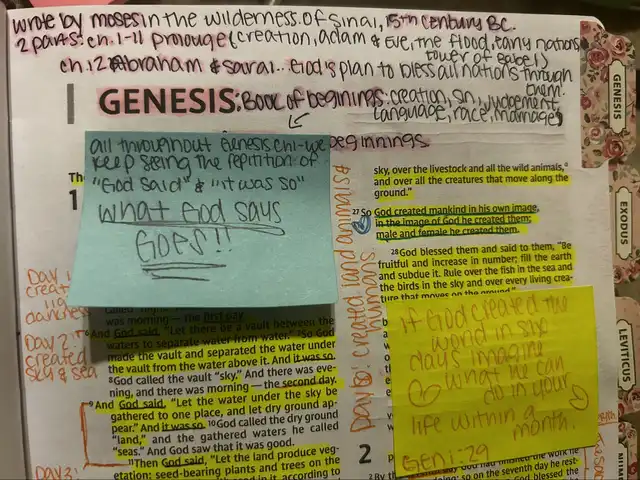 wrote by moses in the wilderness of Sinai, 15th Century BC.
2 parts: ch. 1-11 prologue (creation, adam & Eve, the flood, many nations
tower of babel)
ch. 12 Abraham & Sarai... God's plan to bless all nations through
them.
GENESIS: Book of beginings: creation, sin, judgement,
language, race, marriage)
beginnings
all throughout Genesis ch1- we
keep seeing the repitition of
"God said" & "it was so"
what God says
GOES!!
Th
1
Day 1:
Day 2:
created
sky & sea
Day 3:
was morning—the first day.
6And God said, "Let there be a vault between the
waters to separate water from water." 7So God
made the vault and separated the water under
the vault from the water above it. And it was so.
8God called the vault "sky." And there was eve-
ning, and there was morning—the second day.
9And God said, "Let the water under the sky be
gathered to one place, and let dry ground ap-
pear." And it was so. 10God called the dry ground
"land," and the gathered waters he called
"seas." And God saw that it was good.
11Then God said, "Let the land produce veg-
etation: seed-bearing plants and trees on the
sky, over the livestock and all the wild animals,a
and over all the creatures that move along the
ground."
27So God created mankind in his own image,
in the image of God he created them;
male and female he created them.
28God blessed them and said to them, "Be
fruitful and increase in number; fill the earth
and subdue it. Rule over the fish in the sea and
the birds in the sky and over every living crea-
ture that moves on the ground."
if God created the
world in six
days imagine
what he can
do in your
life within a
month.
Gen 1:29
2
had finished the work he
so on the seventh day he rest-
GENESIS
EXODUS
LEVITICUS